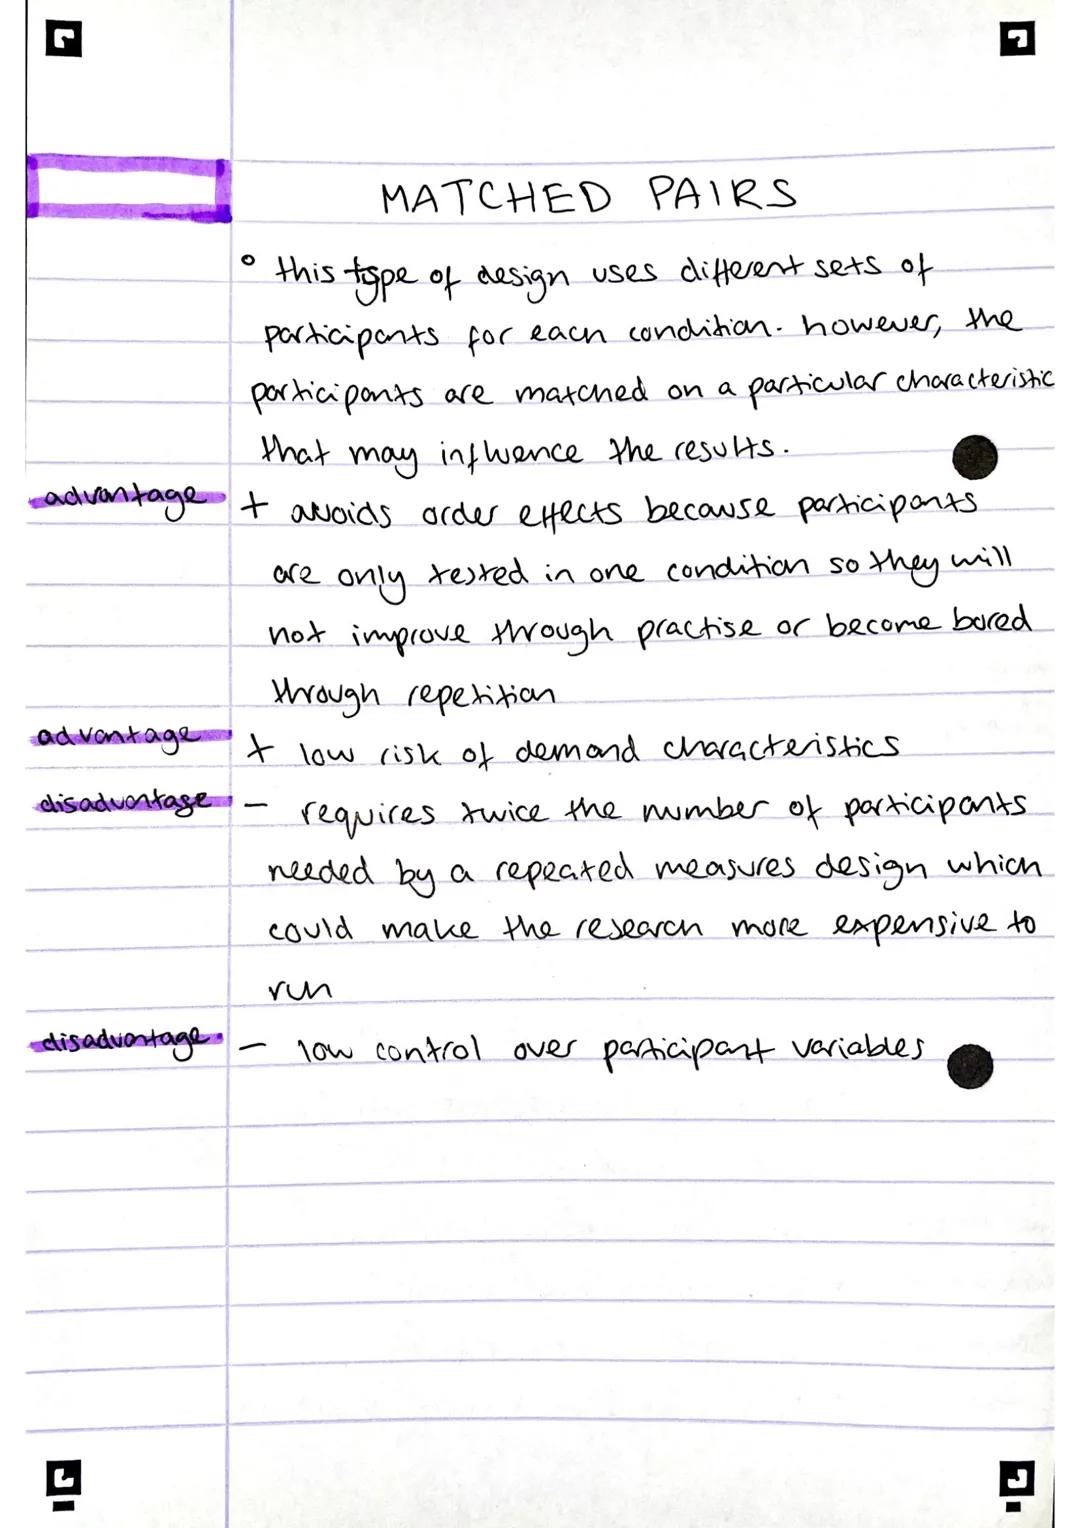 MATCHED PAIRS
° this type of design uses different sets of
participants for each condition. however, the
participants are matched on a particular characteristic
that may influence the results.
advantage + avoids order effects because participants
are only tested in one condition so they will
not improve through practise or become bored
through repetition
advantage + low risk of demand characteristics
disadvantage - requires twice the number of participants
needed by a repeated measures design which
could make the research more expensive to
run
disadvantage - low control over participant variables